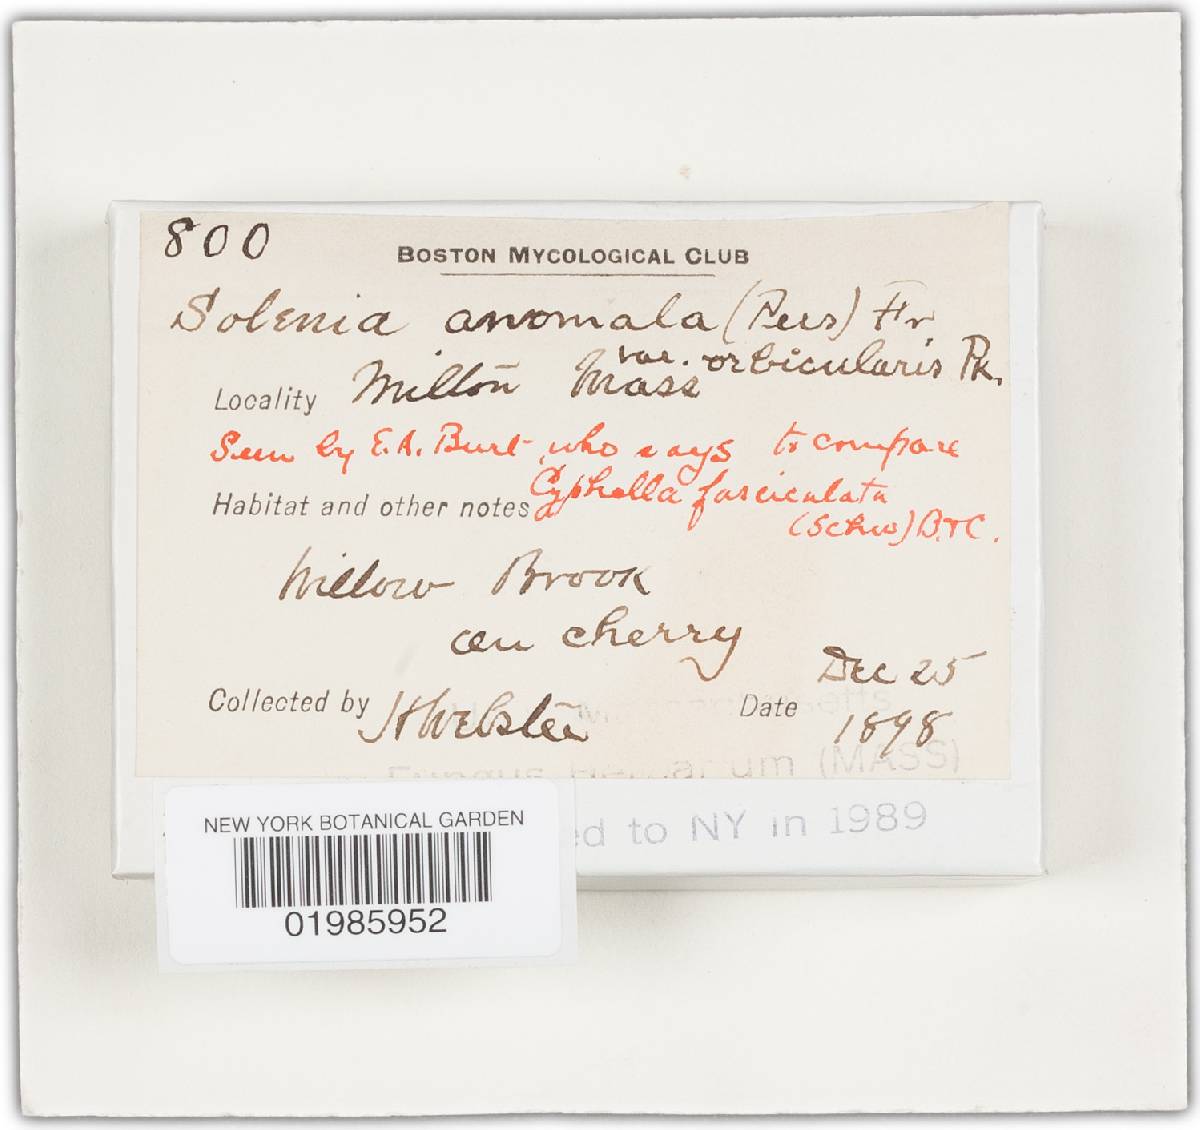 800
BOSTON MYCOLOGICAL CLUB
Solenia anomala (Pers) Fr
var. orbicularis Pk.
Locality Milton Mass
Seen by E.A. Burt who says to compare
Cyphella fasciculata
Habitat and other notes
(Schw) B.&C.
Willow Brook
on cherry
Dec 25
Collected by H Webster Date 1898
Fungus Herbarium (MASS)
ed to NY in 1989
NEW YORK BOTANICAL GARDEN
01985952